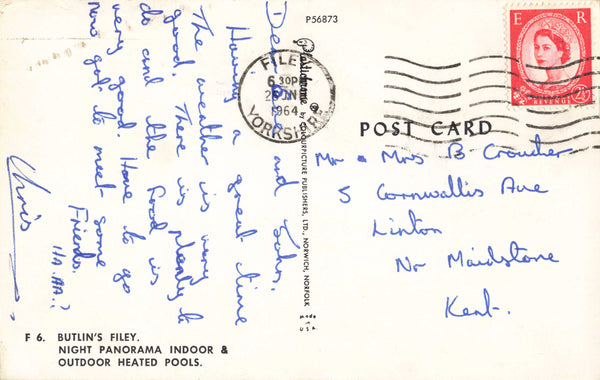 P56873
Dear
and John.
Having a great time
The weather is very
good. There is plenty to
do and the food is
very good Have to go
now got to meet some
Friends.
HA.HA.!!
Chris
FILEY
6 30PM
1964
YORKSHIRE
E R
2½D
REVENUE
Plastichrome ® by COLOURPICTURE PUBLISHERS, LTD., NORWICH, NORFOLK
Made in U.S.A.
POST CARD
Mr & Mrs B Croucher
5 Cornwallis Ave
Linton
Nr Maidstone
Kent.
F 6. BUTLIN'S FILEY.
NIGHT PANORAMA INDOOR &
OUTDOOR HEATED POOLS.